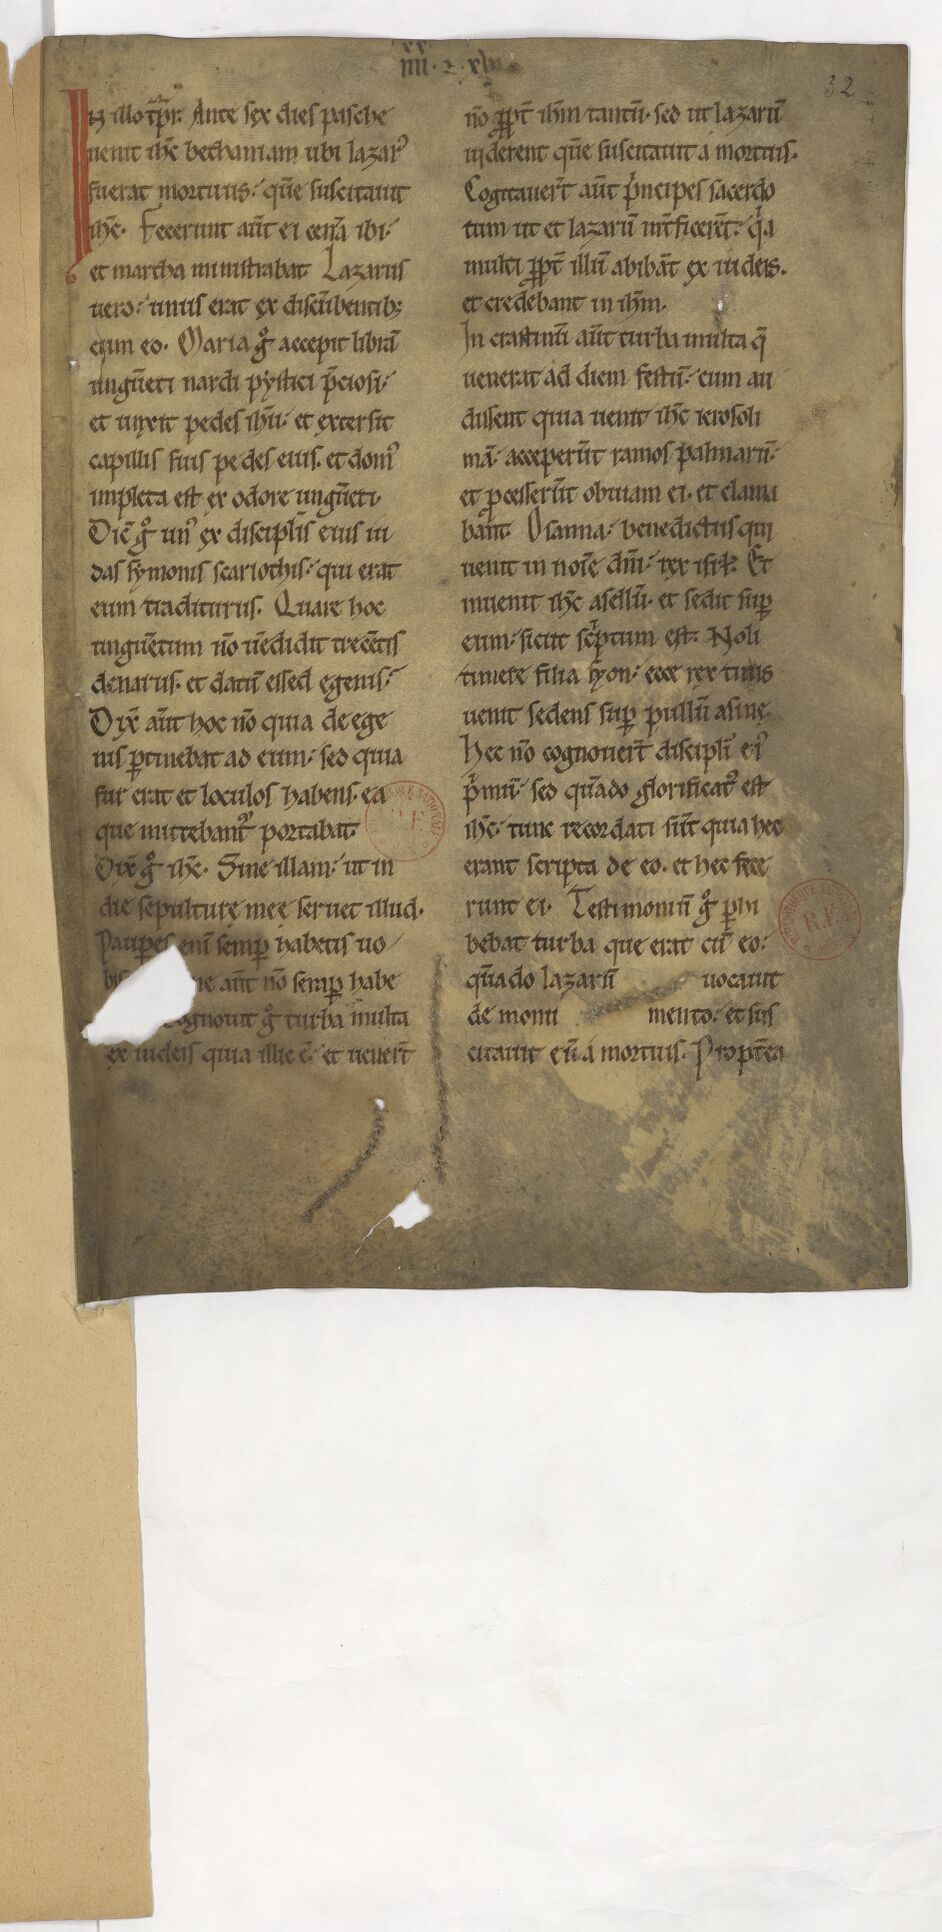 xx
iiii · 2 · xl
32
In illo tp̄r. Ante sex dies pasche
uenit ihc̄ bethaniam ubi lazarꝰ
fuerat mortuus: quē suscitauit
ihc̄. Fecerunt aūt ei cenā ibi·
et martha ministrabat Lazarus
uero: unus erat ex discūbentibꝫ
cum eo. Maria gͦ accepit librā
ungūeti nardi pystici p̄ciosi:
et unxit pedes ihū: et extersit
capillis suis pedes eius. et domꝰ
impleta est ex odore ungūeti·
Dic̄ gͦ unꝰ ex disciplīs eius iu
das symonis scariothis: qui erat
eum traditurus. Quare hoc
unguētum nō uēdidit trecētis
denariis. et datū essed egenis:
Dix̄ aūt hoc nō quia de ege
nis ꝑtinebat ad eum: sed quia
fur erat et loculos habens. ea
que mittebantᷣ portabat.
Dix̄ gͦ ihc̄. Sine illam: ut in
die sepulturę meę seruet illud.
Pauꝑes enī semꝑ habetis uo
ne aūt nō semꝑ habe
ognouit gͦ turba multa
ex iudeis quia illic ē: et uenert̄
nō ꝓpt̄ ihm̄ tantū. sed ut lazarū
uiderent quē suscitauit a mortuis.
Cogitauer̄t aūt pͥncipes sacerdo
tum ut et lazarū int̄ficerēt: qͥa
multi ꝓpt̄ illū abibāt ex iudeis.
et credebant in ihm̄.
In crastinū aūt turba multa q̄
uenerat ad diem festū: cum au
dissent quia uenit ihc̄ ierosoli
mā. acceperūt ramos palmarū:
et ꝓcesserūt obuiam ei. et clama
bant. Osanna: benedictus qui
uenit in noīe dnī: rex isrł. Et
inuenit ihc̄ asellū. et sedit suꝑ
eum: sicut scͥptum est. Noli
timere filia syon: ecce rex tuus
uenit sedens suꝑ pullū asinę.
Hec nō cognouer̄t discipli eiꝰ
pͥmū: sed quādo glorificatꝰ est
ihc̄: tunc recordati sūt quia hec
erant scripta de eo. et hec fece
runt ei. Testimoniū gͦ ꝑhi
bebat turba que erat cū eo:
quādo lazarū uocauit
de monu mento: et sus
citauit eū a mortuis. Propt̄ea